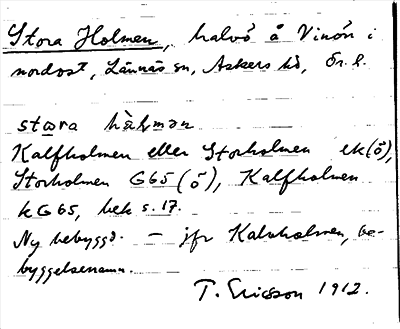 Stora Holmen, halvö å Vinön i
nordost, Lännäs sn, Askers hd, Ör. l.
stɷra hàḷmən
Kalfholmen eller Storholmen ek(ö),
Storholmen G65(ö), Kalfholmen
kG65, bek s. 17.
Ny bebyggd. – jfr Kalvholmen, be-
byggelsenamn.
T. Ericsson 1912.